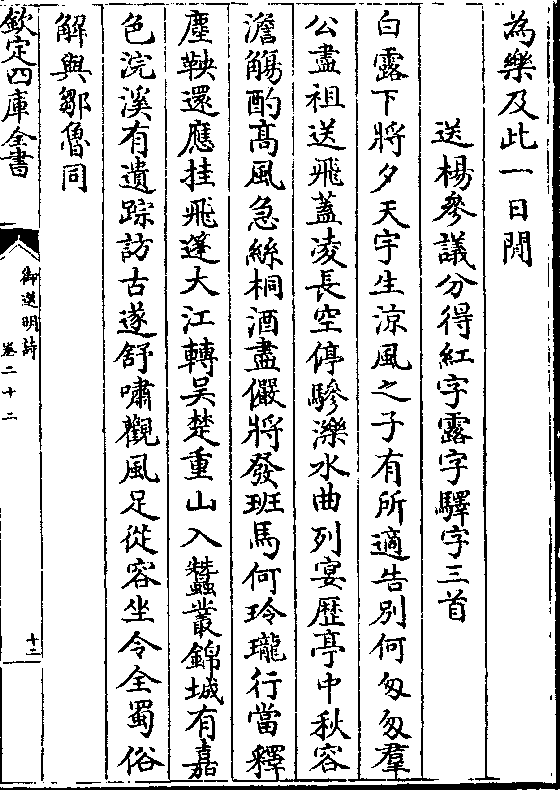 為樂及此一日閒
送楊參議分得紅字露字驛字三首
白露下將夕天宇生涼風之子有所適告別何匆匆羣
公盡祖送飛蓋凌長空停驂濼水曲列宴歴亭中秋容
澹觴酌髙風急絲桐酒盡儼將發班馬何玲瓏行當釋
塵鞅還應挂飛蓬大江轉吳楚重山入蠶叢錦城有嘉
色浣溪有遺踪訪古遂舒嘯觀風足從容坐令全蜀俗
解與鄒魯同
欽定四庫全書
御選明詩
卷二十二
十二